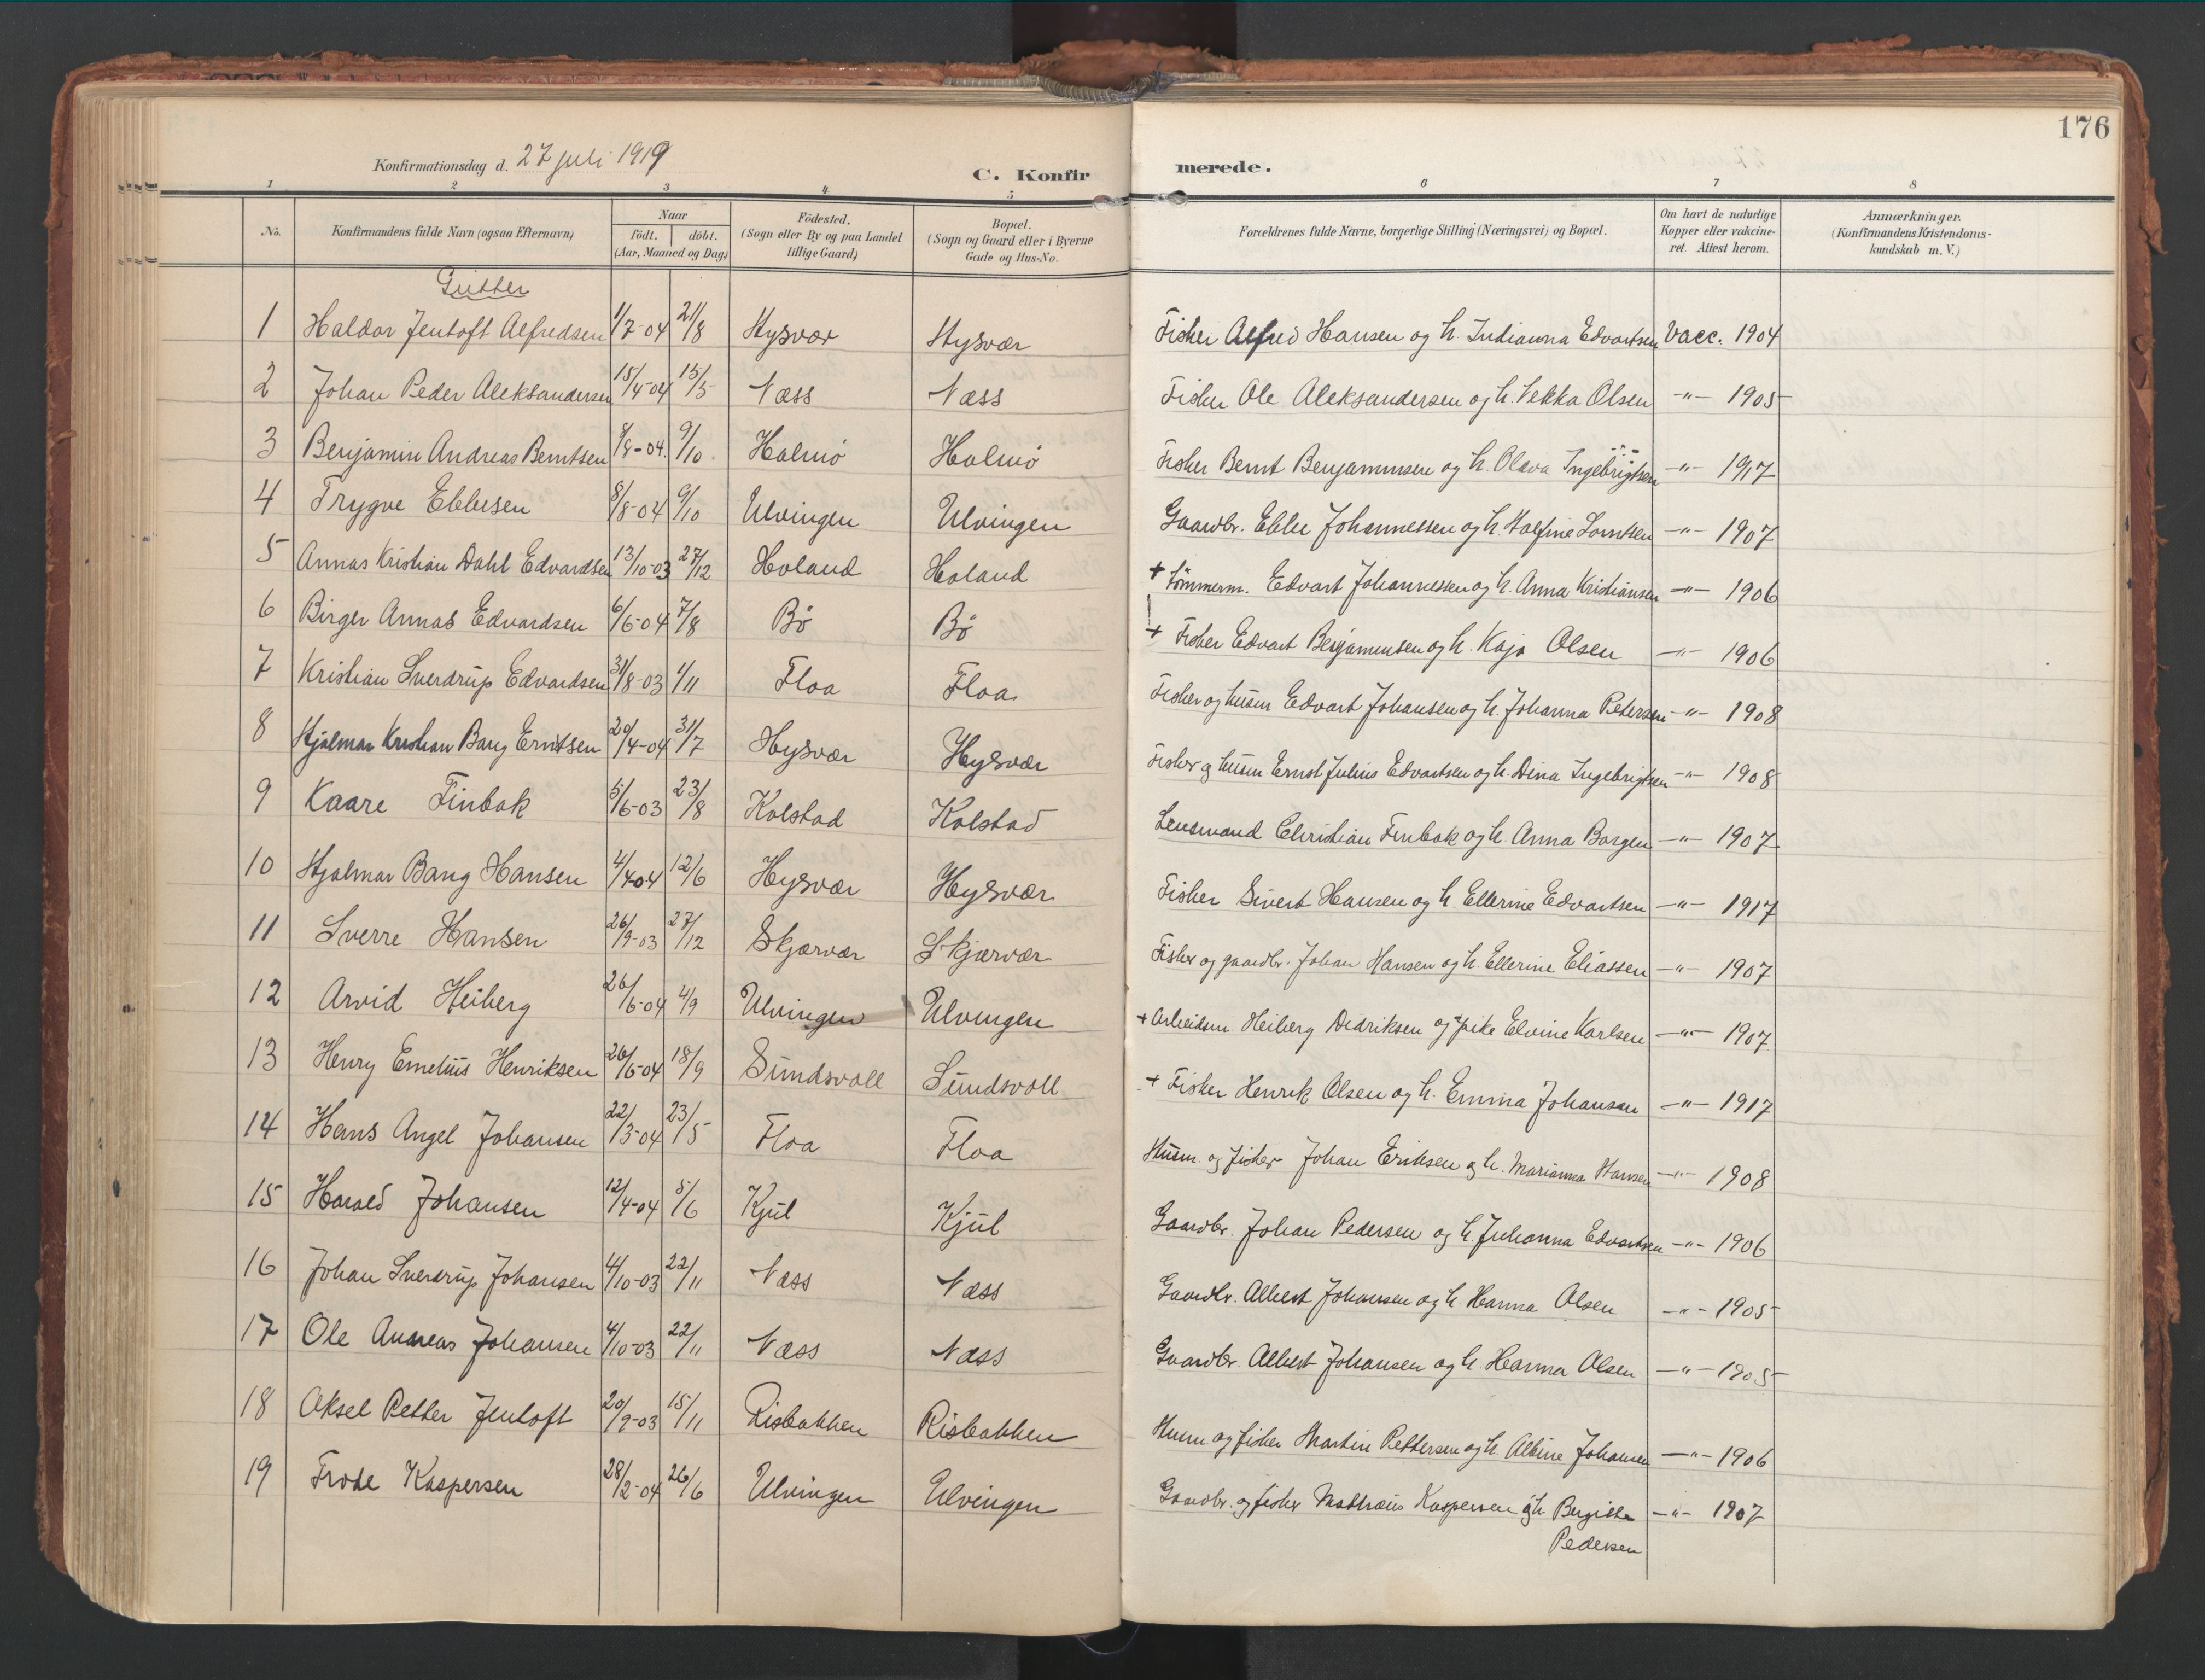 176
Konfirmationsdag d. 27 juli 1919
C. Konfir
merede.
1 2 3 4 5 6 7 8
No. Konfirmandens fulde Navn (ogsaa Efternavn) Naar Födested. Bopæl. Forældrenes fulde Navne, borgerlige Stilling (Næringsvei) og Bopæl. Om havt de naturlige Anmærkninger.
födt. döbt. (Sogn eller By og paa Landet (Sogn og Gaard eller i Byerne Kopper eller vakcine- (Konfirmandens Kristendoms-
(Aar, Maaned og Dag) tillige Gaard) Gade og Hus-No. ret. Attest herom. kundskab m.V.)
Gutter
1 Haldor Jentoft Alfredsen 1/7-04 21/8 Hysvær Hysvær Fisker Alfred Hansen og h. Indianna Edvartsen Vacc. 1904
2 Johan Peder Aleksandersen 15/4-04 15/5 Næss Næss Fisker Ole Aleksandersen og h. Vekka Olsen -"- 1905
3 Benjamin Andreas Berntsen 8/8-04. 9/10 Holmö Holmö Fisker Bernt Benjaminsen og h. Olava Ingebrigtsen -"- 1917
4 Trygve Ebbesen 8/8-04 9/10 Ulvingen Ulvingen Gaardbr. Ebbe Johannessen og h. Halfine Lorntsen -"- 1907
5 Annas Kristian Dahl Edvardsen 13/10-03 27/12 Holand Holand + Tömmerm. Edvart Johannessen og h. Anna Kristiansen -"- 1906
6 Birger Annas Edvardsen 6/6-04 7/8 Bö Bö + Fisker Edvart Benjaminsen og h. Kaja Olsen -"- 1906
7 Kristian Sverdrup Edvardsen 31/8-03 1/11 Floa Floa Fisker og husm Edvart Johansen og h. Johanna Petersen -"- 1908
8 Hjalmar Kristian Bang Erntsen 20/4-04 31/7 Hysvær Hysvær Fisker og husm Ernst Julius Edvartsen og h. Dina Ingebrigtsen -"- 1908
9 Kaare Finbak 5/6-03 23/8 Kolstad Kolstad Lensmand Christian Finbak og h. Anna Borgen -"- 1907
10 Hjalmar Bang Hansen 4/4-04 12/6 Hysvær Hysvær Fisker Sivert Hansen og h. Ellerine Edvartsen -"- 1917
11 Sverre Hansen 26/9-03 27/12 Skjærvær Skjærvær Fisker og gaardbr. Johan Hansen og h. Ellerine Eliassen -"- 1907
12 Arvid Heiberg 26/6-04 4/9 Ulvingen Ulvingen + Arbeidsm Heiberg Didriksen og pike Elvine Karlsen -"- 1907
13 Henry Emelius Henriksen 26/6-04 18/9 Sundsvoll Sundsvoll + Fisker Henrik Olsen og h. Emma Johansen -"- 1917
14 Hans Angel Johansen 22/3-04 23/5 Floa Floa Husm. og fisker Johan Eriksen og h. Marianna Hansen -"- 1908
15 Harald Johansen 12/4-04 5/6 Kjul Kjul Gaardbr. Johan Pedersen og h. Juhanna Edvartsen -"- 1906
16 Johan Sverdrup Johansen 4/10-03 22/11 Næss Næss Gaardbr. Albert Johansen og h. Hanna Olsen -"- 1905
17 Ole Andreas Johansen 4/10-03 22/11 Næss Næss Gaardbr. Albert Johansen og h. Hanna Olsen -"- 1905
18 Aksel Petter Jentoft 20/9-03 15/11 Risbakken Risbakken Husm og fisker Martin Pettersen og h. Albine Johansen -"- 1906
19 Frode Kaspersen 28/2-04 26/6 Ulvingen Ulvingen Gaardbr. og fisker Mathæus Kaspersen og h. Bergitte -"- 1907
Pedersen